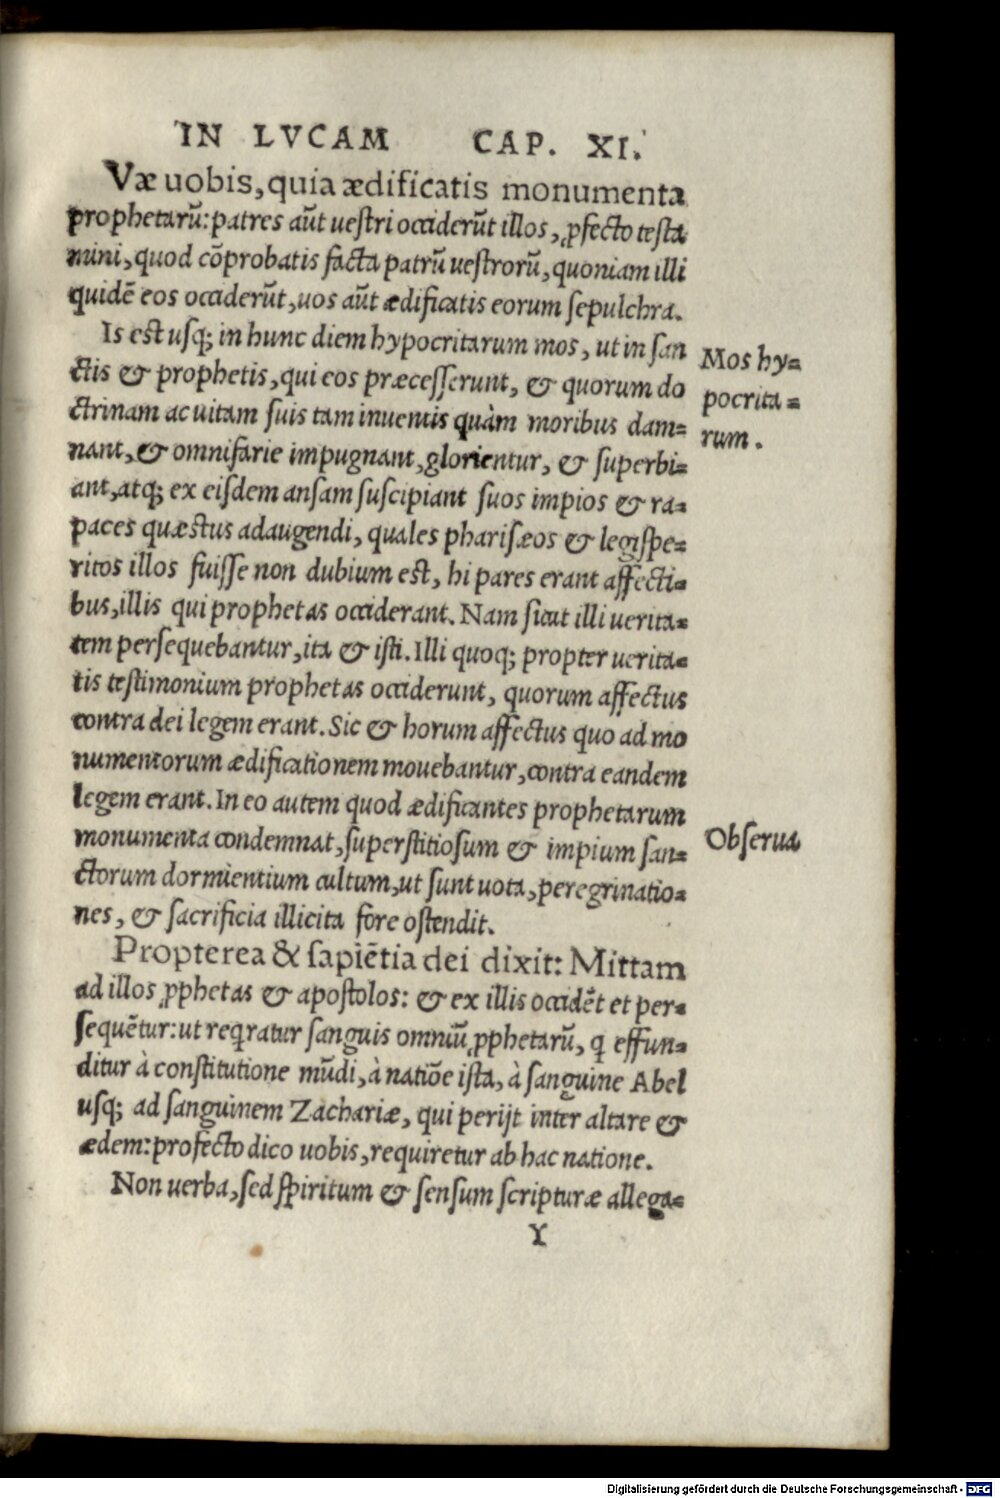 IN LVCAM CAP. XI.
Væ uobis, quia ædificatis monumenta
prophetarũ: patres aũt uestri occiderũt illos, ꝓfecto testa
mini, quod cõprobatis facta patrũ uestrorũ, quoniam illi
quidẽ eos occiderũt, uos aũt ædificatis eorum sepulchra.
Is est usq; in hunc diem hypocritarum mos, ut in san
ctis & prophetis, qui eos præcesserunt, & quorum do
ctrinam ac uitam suis tam inuentis quàm moribus dam=
nant, & omnifarie impugnant, glorientur, & superbi=
ant, atq; ex eisdem ansam suscipiant suos impios & ra=
paces quæstus adaugendi, quales pharisæos & legispe=
ritos illos fuisse non dubium est, hi pares erant affecti=
bus, illis qui prophetas occiderant. Nam sicut illi uerita=
tem persequebantur, ita & isti. Illi quoq; propter uerita=
tis testimonium prophetas occiderunt, quorum affectus
contra dei legem erant. Sic & horum affectus quo ad mo
numentorum ædificationem mouebantur, contra eandem
legem erant. In eo autem quod ædificantes prophetarum
monumenta condemnat, superstitiosum & impium san=
ctorum dormientium cultum, ut sunt uota, peregrinatio=
nes, & sacrificia illicita fore ostendit.
Propterea & sapiẽtia dei dixit: Mittam
ad illos ꝓphetas & apostolos: & ex illis occidẽt et per=
sequẽtur: ut reqratur sanguis omniũ ꝓphetarũ, q effun=
ditur à constitutione mũdi, à natiõe ista, à sanguine Abel
usq; ad sanguinem Zachariæ, qui perijt inter altare &
ædem: profecto dico uobis, requiretur ab hac natione.
Non uerba, sed spiritum & sensum scripturæ allega=
Y
Mos hy=
pocrita=
rum.
Obserua
Digitalisierung gefördert durch die Deutsche Forschungsgemeinschaft - DFG